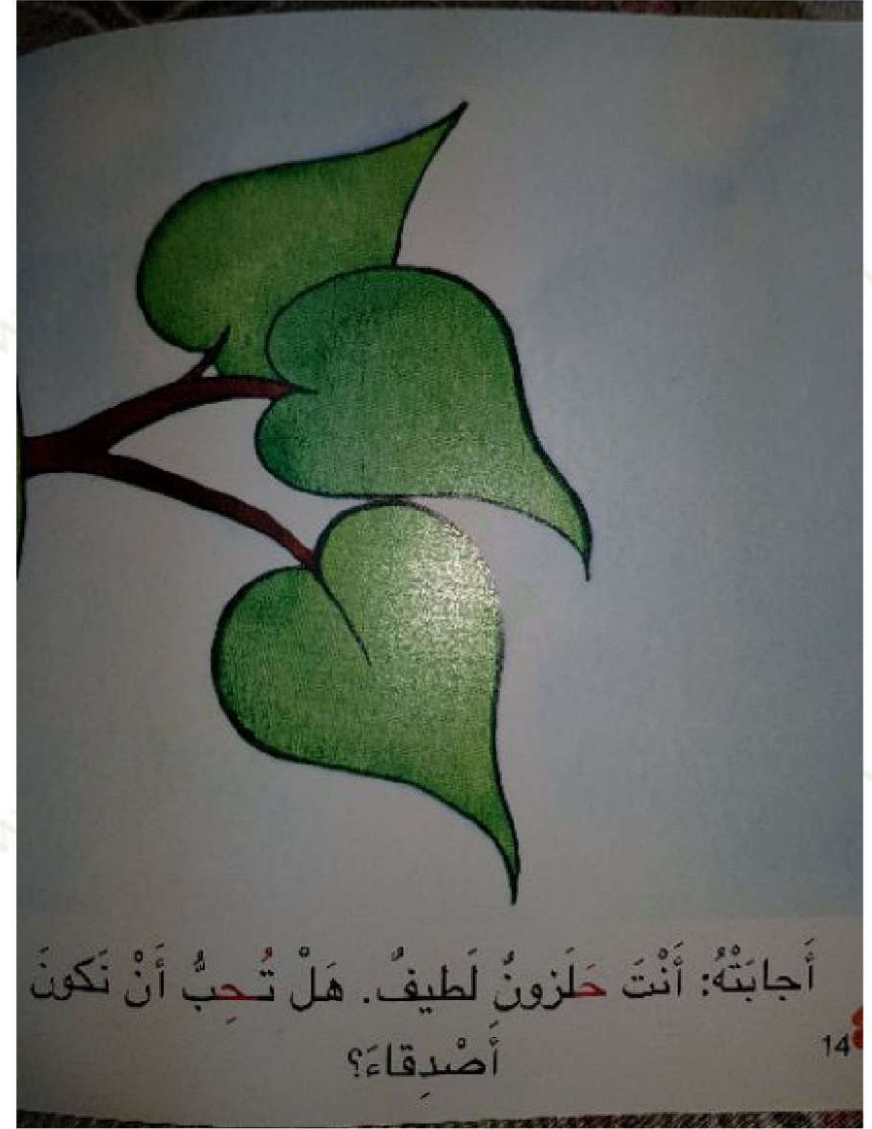 أَجابَتْهُ: أَنْتَ حَلَزونٌ لَطيفٌ. هَلْ تُحِبُّ أَنْ نَكونَ
أَصْدِقاءَ؟
14